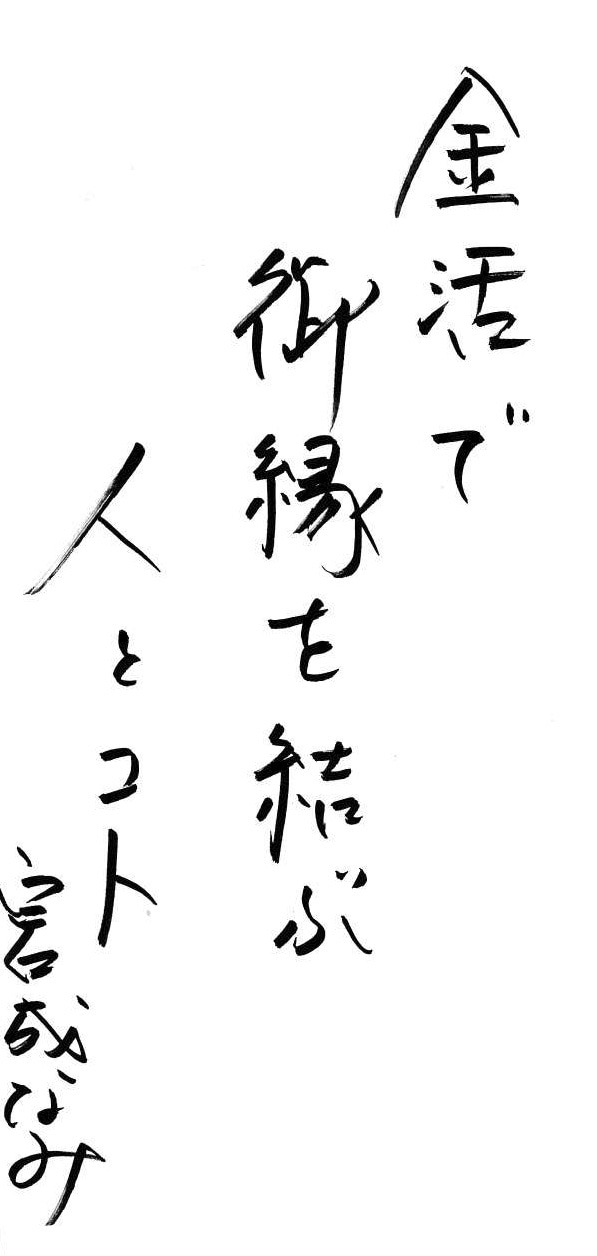 金活で
御縁を結ぶ
人とコト
宮成なみ